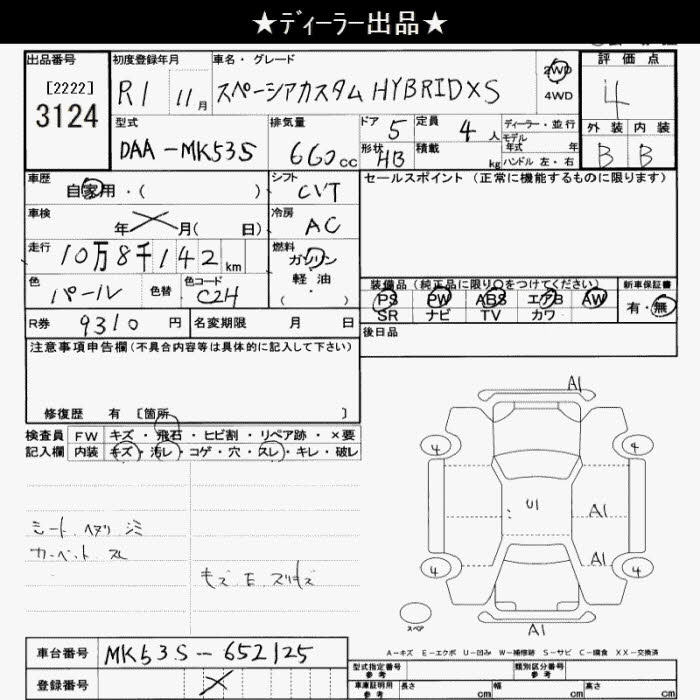 ★ディーラー出品★
出品番号 初度登録年月 車名・グレード 評価点
[2222] R1 11月 スペーシアカスタム HYBRIDXS 2WD 4
3124 4WD
型式 排気量 ドア 5 定員 4人 ディーラー・並行 外装 内装
DAA-MK53S 660cc 形状 HB 積載 kg モデル年式 年 B B
ハンドル 左・右
車歴 自家用・( ) シフト CVT セールスポイント (正常に機能するものに限ります)
車検 年 月( 日) 冷房 AC
走行 10万8千142km 燃料 ガソリン
軽油
( ・ )
色 パール 色替 色コード C2H 装備品 (純正品に限り○をつけてください) 新車保証書
PS PW ABS エアB AW 有・無
R券 9310円 名変期限 月 日 SR ナビ TV カワ
注意事項申告欄(不具合内容等は具体的に記入して下さい) 後日品
修復歴 有 [箇所 ]
検査員 FW キズ・飛石・ヒビ割・リペア跡・×要
記入欄 内装 キズ・汚レ・コゲ・穴・スレ・キレ・破レ
A1
4 4
U1 A1
A1
4 4
シート ヘタリ シミ
カーペット スレ
キズ E スリキズ
スペア
A1
A-キズ E-エクボ U-凹み W-補修跡 S-サビ C-腐食 XX-交換済
車台番号 MK53S-652125
型式指定番号 参考 類別区分番号 参考
登録番号
車庫証明用 参考 長さ cm 幅 cm 高さ cm